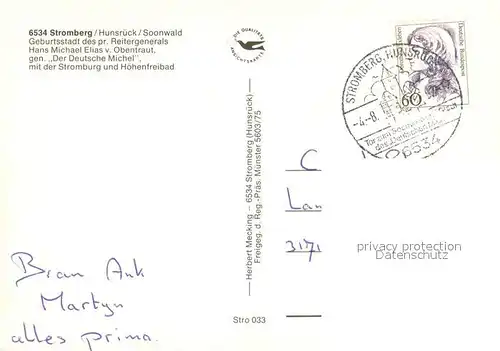 6534 Stromberg / Hunsrück / Soonwald
Geburtsstadt des pr. Reitergenerals
Hans Michael Elias v. Obentraut,
gen. „Der Deutsche Michel",
mit der Stromburg und Höhenfreibad
DIE QUALITÄTS
ANSICHTSKARTE
Herbert Mecking – 6534 Stromberg (Hunsrück)
Freigeg. d. Reg.-Präs. Münster 5603/75
Deutsche Bundespost
60
STROMBERG, HUNSRÜCK
-4.-8.
Tor zum Soonwald
6534
C
Lan
3171
privacy protection
Datenschutz
Martyn
alles prima.
Stro 033